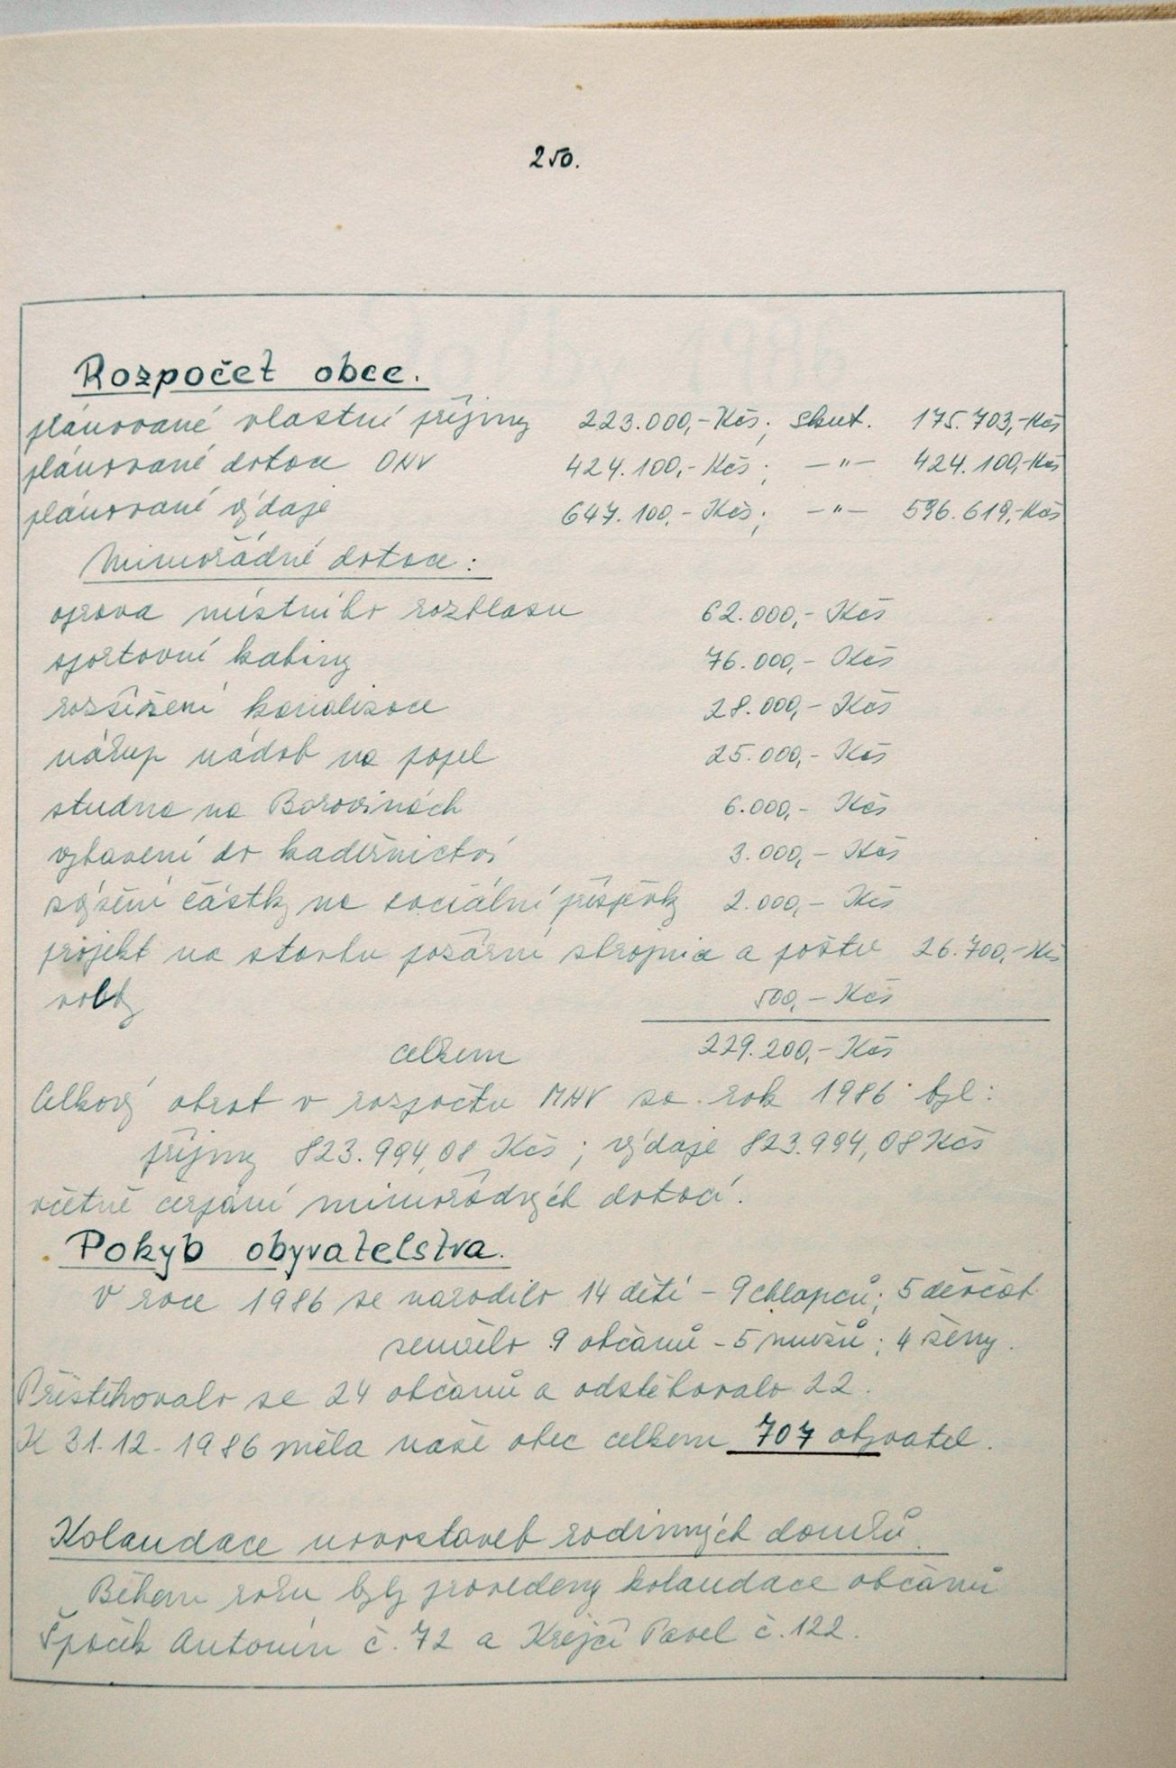 250.
Rozpočet obce.
plánované vlastní příjmy 223.000,- Kčs; skut. 175.703,- Kčs
plánované dotace ONV 424.100,- Kčs; —"— 424.100,- Kčs
plánované výdaje 647.100,- Kčs; —"— 596.619,- Kčs
Mimořádné dotace:
oprava místního rozhlasu 62.000,- Kčs
sportovní kabiny 76.000,- Kčs
rozšíření kanalizace 28.000,- Kčs
nákup nádob na popel 25.000,- Kčs
studna na Borovinách 6.000,- Kčs
vybavení do kadeřnictví 3.000,- Kčs
zvýšení částky na sociální příspěvky 2.000,- Kčs
projekt na stavbu požární zbrojnice a poštu 26.700,- Kčs
volby 500,- Kčs
celkem 229.200,- Kčs
Celkový obrat v rozpočtu MNV za rok 1986 byl:
příjmy 823.994,08 Kčs; výdaje 823.994,08 Kčs
včetně čerpání mimořádných dotací.
Pohyb obyvatelstva.
V roce 1986 se narodilo 14 dětí - 9 chlapců; 5 děvčat
zemřelo 9 občanů - 5 mužů; 4 ženy.
Přistěhovalo se 24 občanů a odstěhovalo 22.
K 31.12. 1986 měla naše obec celkem 707 obyvatel.
Kolaudace novostaveb rodinných domků.
Během roku byly provedeny kolaudace občanů
Antonín č. 72 a Krejčí Pavel č. 122.